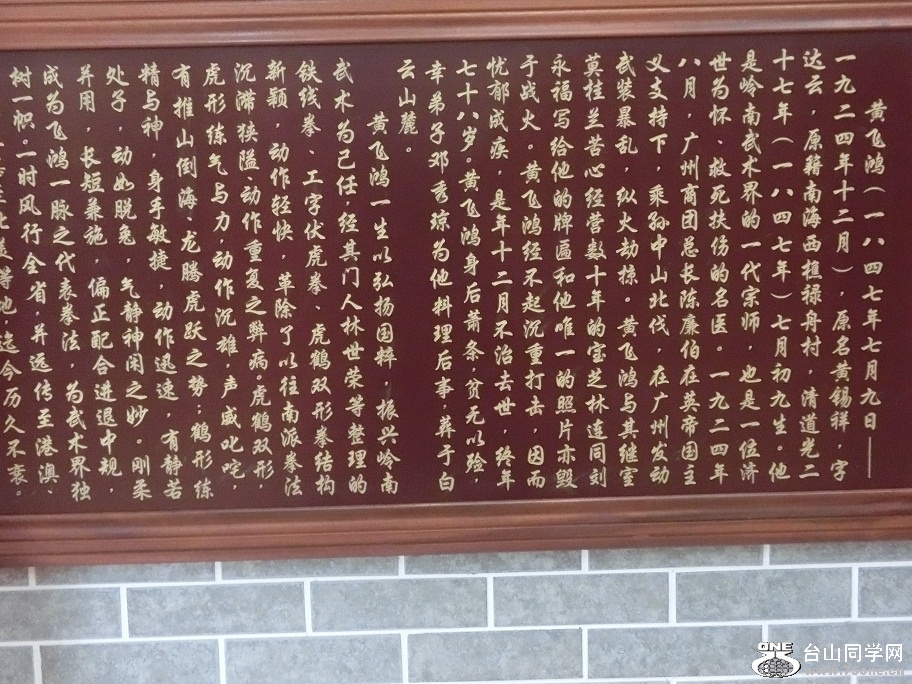 黄飞鸿（一八四七年七月九日——
一九二四年十二月），原名黄锡祥，字
达云，原籍南海西樵禄舟村，清道光二
十七年（一八四七年）七月初九生。他
是岭南武术界的一代宗师，也是一位济
世为怀、救死扶伤的名医。一九二四年
八月，广州商团总长陈廉伯在英帝国主
义支持下，乘孙中山北伐，在广州发动
武装暴乱，纵火劫掠。黄飞鸿与其继室
莫桂兰苦心经营数十年的宝芝林连同刘
永福写给他的牌匾和他唯一的照片亦毁
于战火。黄飞鸿经不起沉重打击，因而
忧郁成疾，是年十二月不治去世，终年
七十八岁。黄飞鸿身后萧条，贫无以殓，
幸弟子邓秀琼为他料理后事，葬于白
云山麓。
黄飞鸿一生以弘扬国粹，振兴岭南
武术为己任，经其门人林世荣等整理的
铁线拳、工字伏虎拳、虎鹤双形拳结构
新颖，动作轻快，革除了以往南派拳法
沉滞狭隘，动作重复之弊病，虎鹤双形
虎形练气与力，动作沉雄，声威叱咤，
有推山倒海，龙腾虎跃之势；鹤形练
精与神，身手敏捷，动作迅速，有静若
处子，动如脱兔，气静神闲之妙。刚柔
并用，长短兼施，偏正配合进退中规，
成为飞鸿一脉之代表拳法，为武术界独
树一帜。一时风行全省，并远传至港澳、
美等地，迄今历久不衰。
ONE
台山同学网